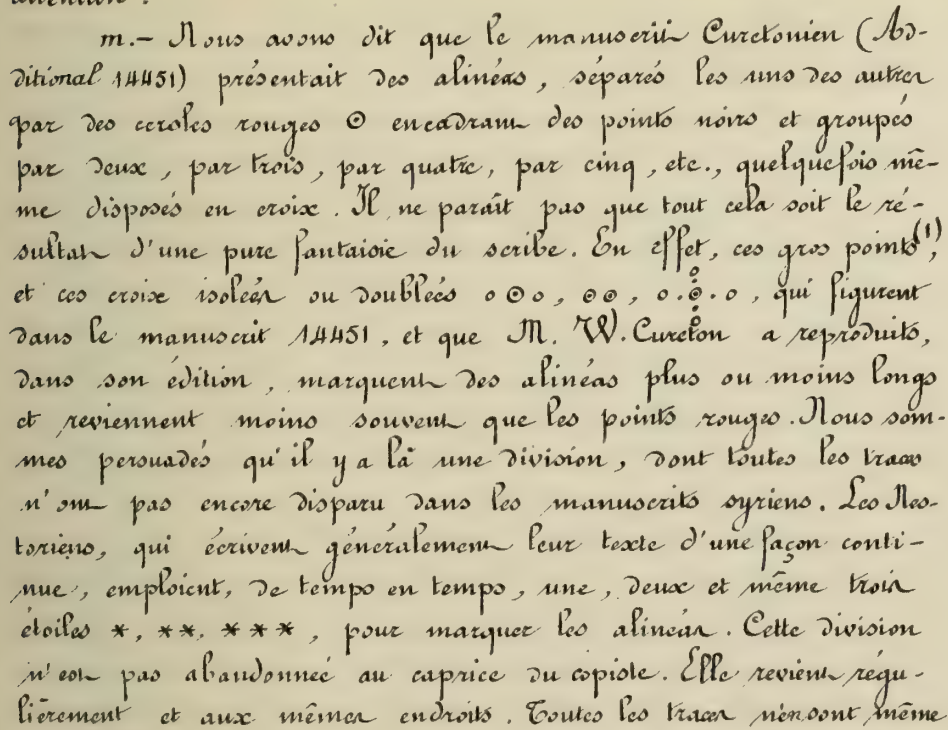 attention.
m.– Nous avons dit que le manuscrit Curetonien (Ad-
ditional 14451) présentait des alinéas, séparés les uns des autres
par des cercles rouges ⊙ encadrant des points noirs et groupés
par deux, par trois, par quatre, par cinq, etc., quelquefois mê-
me disposés en croix. Il ne paraît pas que tout cela soit le ré-
sultat d'une pure fantaisie du scribe. En effet, ces gros points(1),
et ces croix isolées ou doublées o⊙o, ⊙⊙, o.⊙.o, qui figurent
dans le manuscrit 14451, et que M. W. Cureton a reproduits,
dans son édition, marquent des alinéas plus ou moins longs
et reviennent moins souvent que les points rouges. Nous som-
mes persuadés qu'il y a là une division, dont toutes les traces
n'ont pas encore disparu dans les manuscrits syriens. Les Nes-
toriens, qui écrivent généralement leur texte d'une façon conti-
nue, emploient, de temps en temps, une, deux et même trois
étoiles *, **, ***, pour marquer les alinéas. Cette division
n'est pas abandonnée au caprice du copiste. Elle revient régu-
lièrement et aux mêmes endroits. Toutes les traces n'en sont même